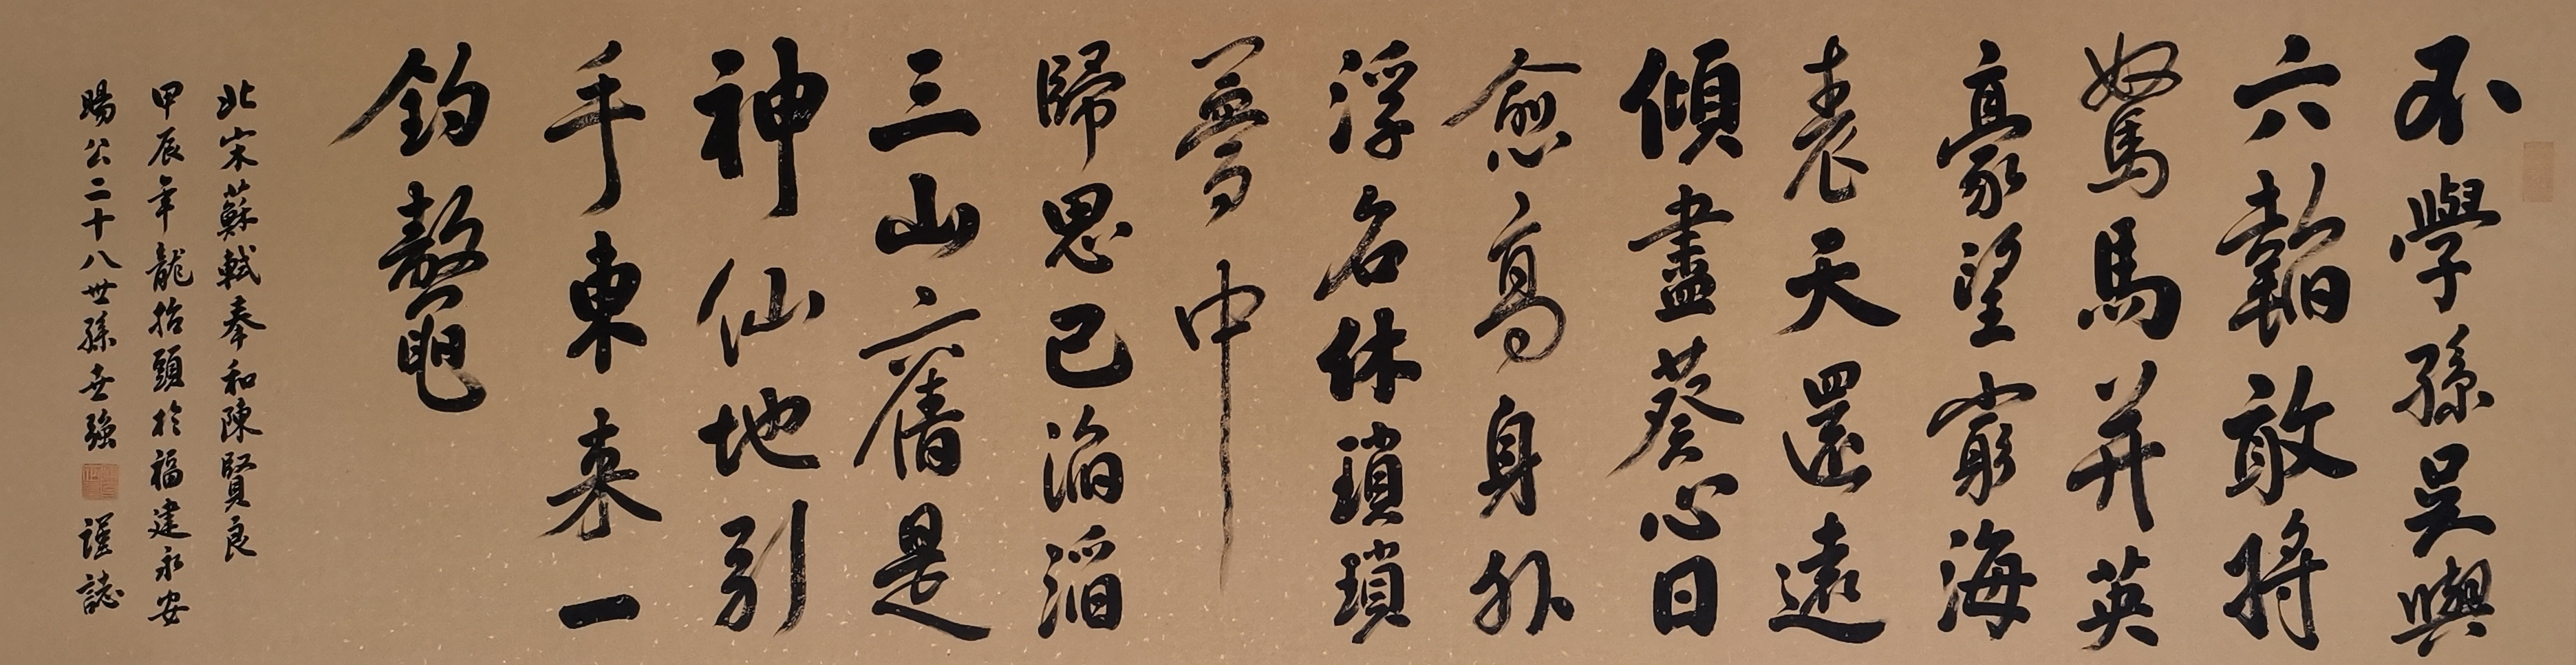 不學孫吳與
六韜敢將
駑馬馬并英
豪望窮海
表天還遠
傾盡葵心日
愈高身外
浮名休瑣瑣
夢中
歸思已滔滔
三山舊是
神仙地引
手東来一
釣鼇
北宋蘇軾奉和陳賢良
甲辰年龍抬頭於福建永安
賜公二十八世孫世強
謹誌